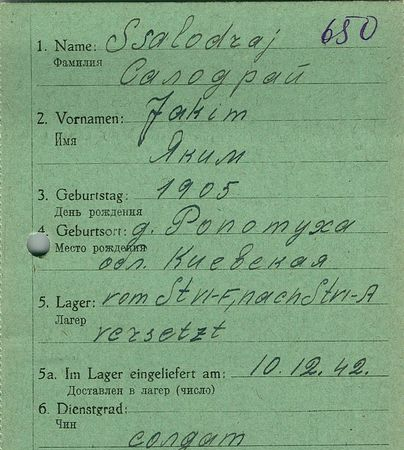 650
1. Name: Ssalodraj
Фамилия
Салодрай
2. Vornamen: Jakim
Имя
Яким
3. Geburtstag: 1905
День рождения
4. Geburtsort: д. Ропотуха
Место рождения
обл. Киевская
5. Lager: vom Stri-F, nach Stri-A
Лагерь
versetzt
5a. Im Lager eingeliefert am: 10.12.42.
Доставлен в лагер (число)
6. Dienstgrad:
Чин
солдат